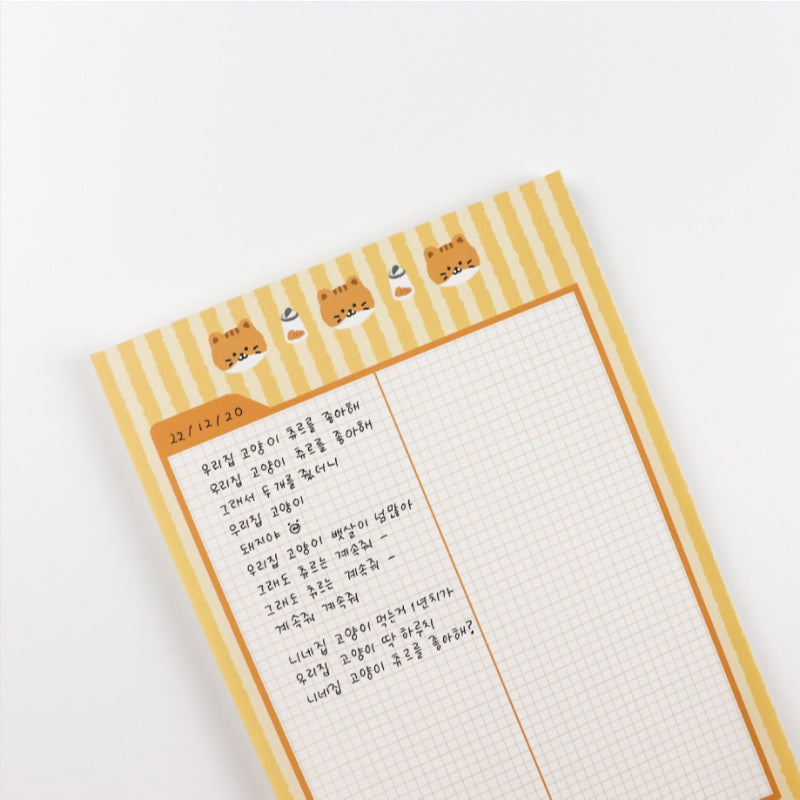 22/12/20
우리집 고양이 츄르를 좋아해
우리집 고양이 츄르를 좋아해
그래서 두개를 줬더니
우리집 고양이
돼지야
우리집 고양이 뱃살이 넘많아
그래도 츄르는 계속줘 -
그래도 츄르는 계속줘 -
계속줘 계속줘
니네집 고양이 먹는거 1년치가
우리집 고양이 딱 하루치
니네집 고양이 츄르를 좋아해?